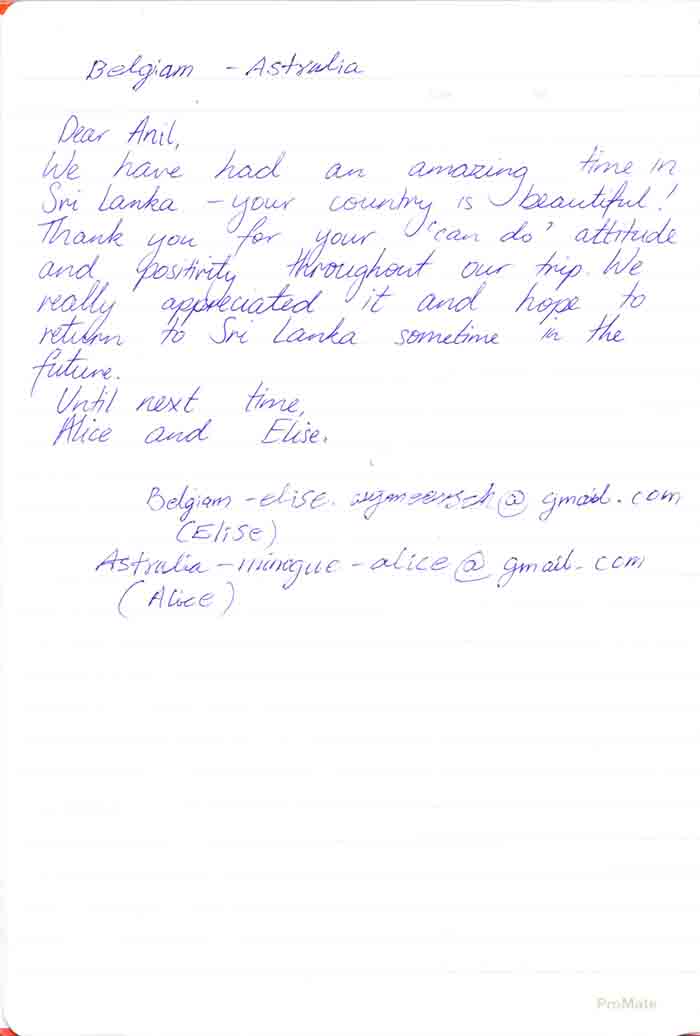 Belgiam - Astralia
Dear Anil,
We have had an amazing time in
Sri Lanka - your country is beautiful!
Thank you for your 'can do' attitude
and positivity throughout our trip. We
really appreciated it and hope to
return to Sri Lanka sometime in the
future.
Until next time,
Alice and Elise.
Belgiam - elise. @ gmail. com
(Elise)
Astralia - minogue - alice @ gmail. com
(Alice)
ProMate